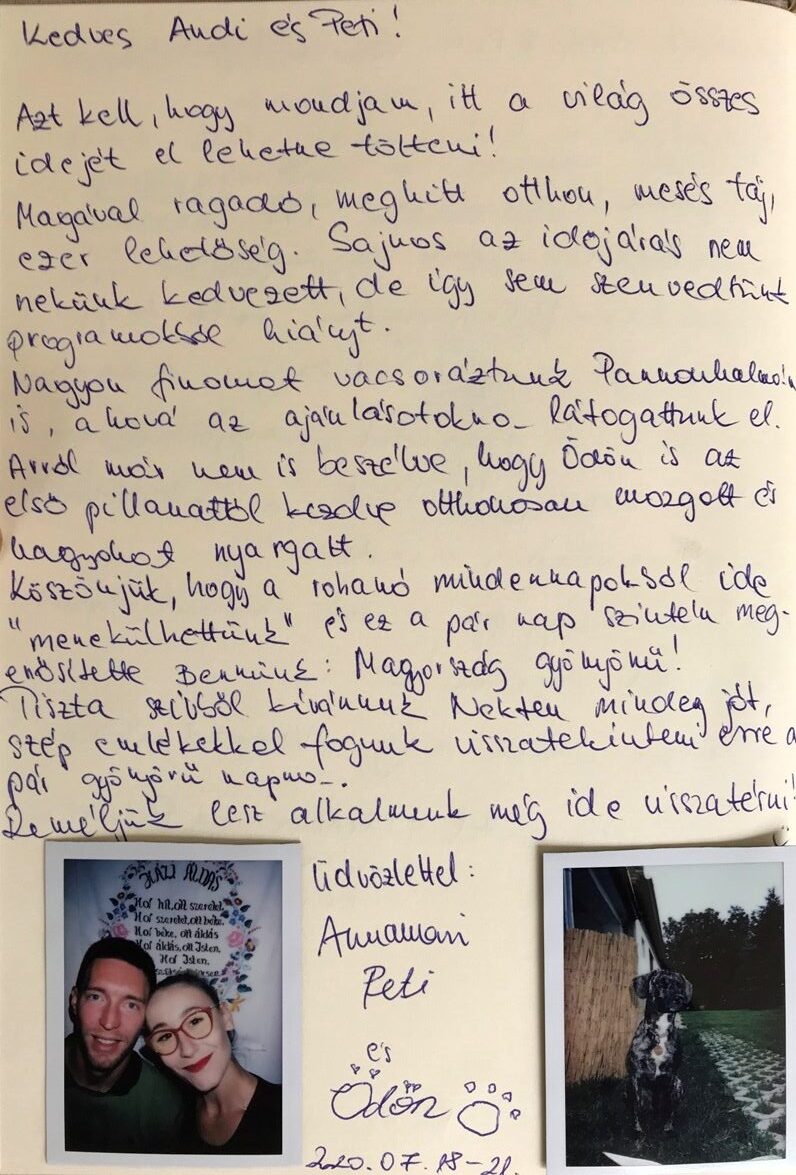 Kedves Andi és Peti!
Azt kell, hogy mondjam, itt a világ összes
idejét el lehetne tölteni!
Magával ragadó, meghitt otthon, mesés táj,
ezer lehetőség. Sajnos az időjárás nem
nekünk kedvezett, de így sem szenvedtünk
programokból hiányt.
Nagyon finomat vacsoráztunk Pannonhalmán
is, ahová az ajánlásotokra látogattunk el.
Arról már nem is beszélve, hogy Ödön is az
első pillanattól kezdve otthonosan mozgott és
nagyokat nyargalt.
Köszönjük, hogy a rohanó mindennapokból ide
"menekülhettünk" és ez a pár nap szintén meg-
erősítette bennünk: Magyország gyönyörű!
Tiszta szívből kívánunk Nektek minden jót,
szép emlékekkel fogunk visszatekinteni erre a
pár gyönyörű napra.
Reméljük lesz alkalmunk még ide visszatérni!
Üdvözlettel:
Annamari
Peti
és
Ödön
2020.07.18-21.
HÁZI ÁLDÁS
Hol hit, ott szeretet,
Hol szeretet, ott béke,
Hol béke, ott áldás
Hol áldás, ott Isten,
Hol Isten,